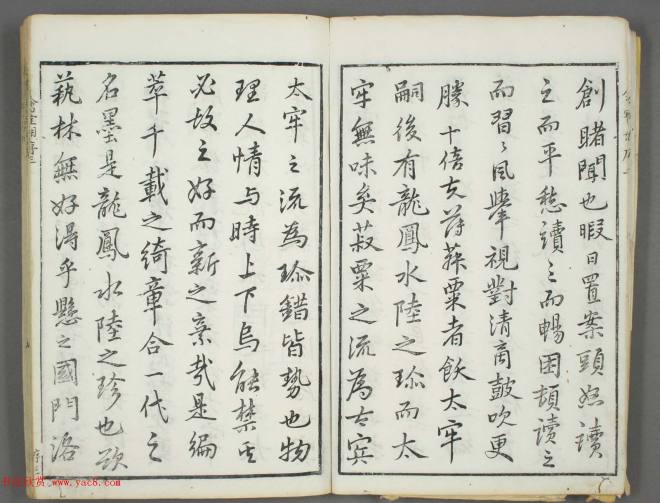 創睹聞也暇日置案頭怒讀
之而平愁讀之而暢困頓讀之
而習習風舉視對清商鼓吹更
勝十倍夫薄菽粟者飫太牢
嗣後有龍鳳水陸之珍而太
牢無味矣菽粟之流為大賓
太牢之流為珍錯皆勢也物
理人情与時上下烏能禁其
必故之好而新之棄哉是編
萃千載之綺章合一代之
名墨是龍鳳水陸之珍也欲
蓺林無好得乎懸之國門洛
书法欣赏 www.yac8.com